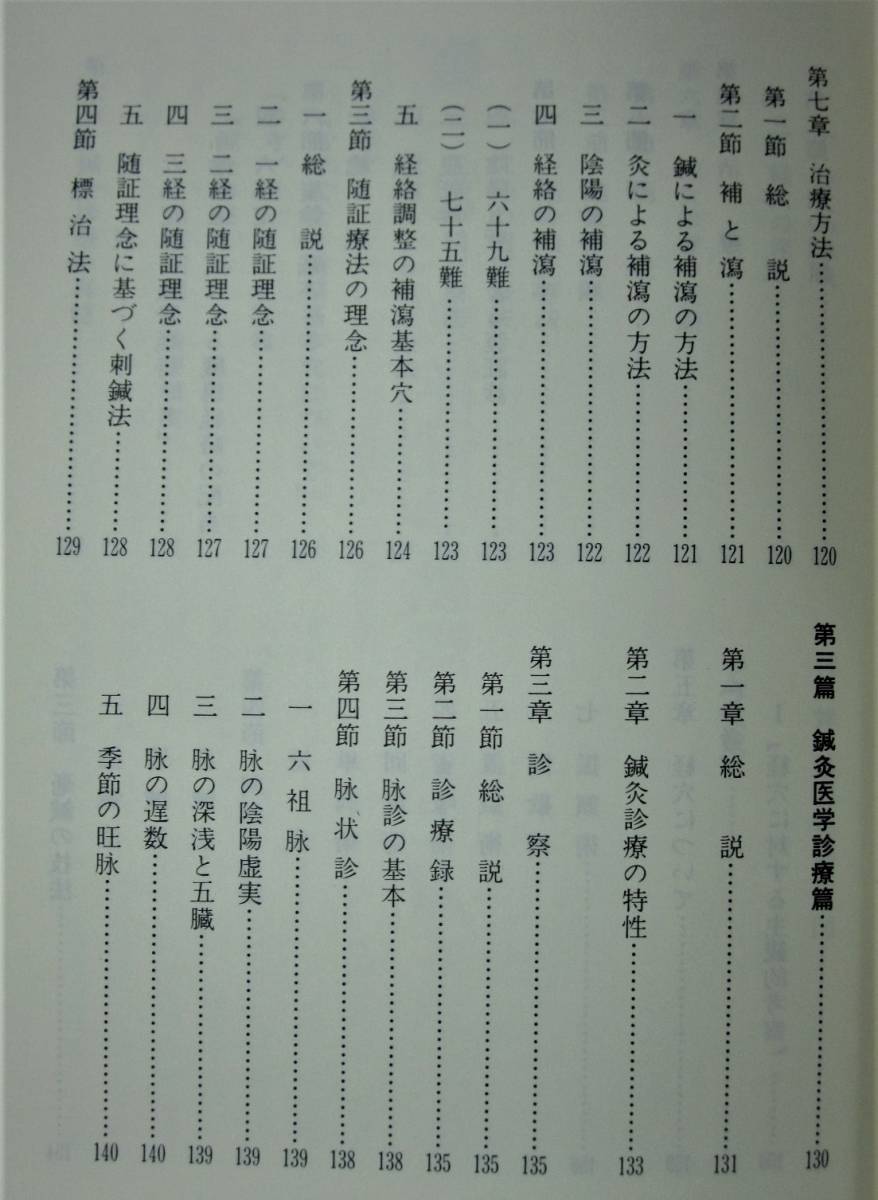 第七章 治療方法……………………120
第一節 総 説……………………120
第二節 補と瀉……………………121
一 鍼による補瀉の方法……………………121
二 灸による補瀉の方法……………………122
三 陰陽の補瀉……………………122
四 経絡の補瀉……………………123
(一) 六十九難……………………123
(二) 七十五難……………………123
五 経絡調整の補瀉基本穴……………………124
第三節 随証療法の理念……………………126
一 総 説……………………126
二 一経の随証理念……………………127
三 二経の随証理念……………………127
四 三経の随証理念……………………128
五 随証理念に基づく刺鍼法……………………128
第四節 標治法……………………129
第三篇 鍼灸医学診療篇……………………130
第一章 総 説……………………131
第二章 鍼灸診療の特性……………………133
第三章 診 察……………………135
第一節 総 説……………………135
第二節 診療録……………………135
第三節 脉診の基本……………………138
第四節 脉状診……………………138
一 六祖脉……………………139
二 脉の陰陽虚実……………………139
三 脉の深浅と五臓……………………139
四 脉の遅数……………………140
五 季節の旺脉……………………140